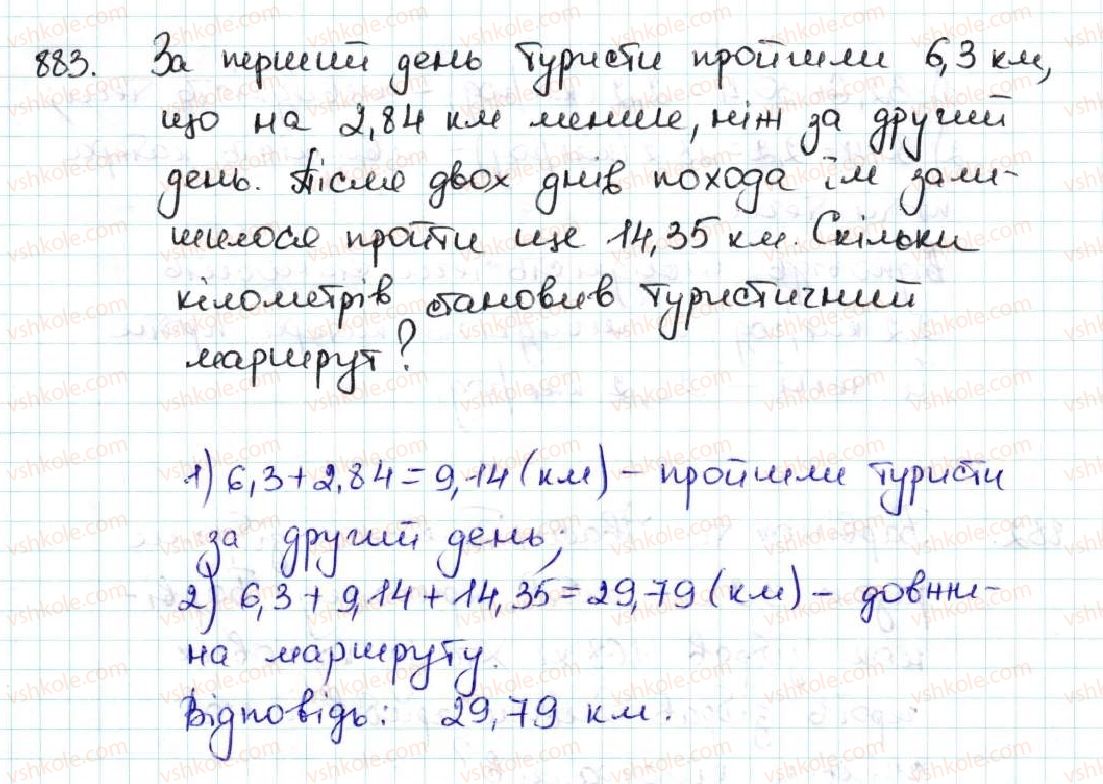 883. За перший день туристи пройшли 6,3 км,
що на 2,84 км менше, ніж за другий
день. Після двох днів похода їм зали-
шилося пройти ще 14,35 км. Скільки
кілометрів становив туристичний
маршрут?
1) 6,3+2,84=9,14 (км) - пройшли туристи
за другий день;
2) 6,3+9,14+14,35=29,79 (км) - довжи-
на маршруту.
Відповідь: 29,79 км.